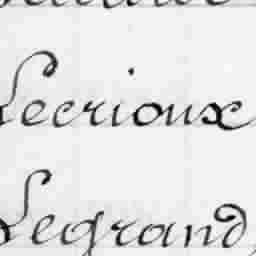 Lecrioux
Legrand